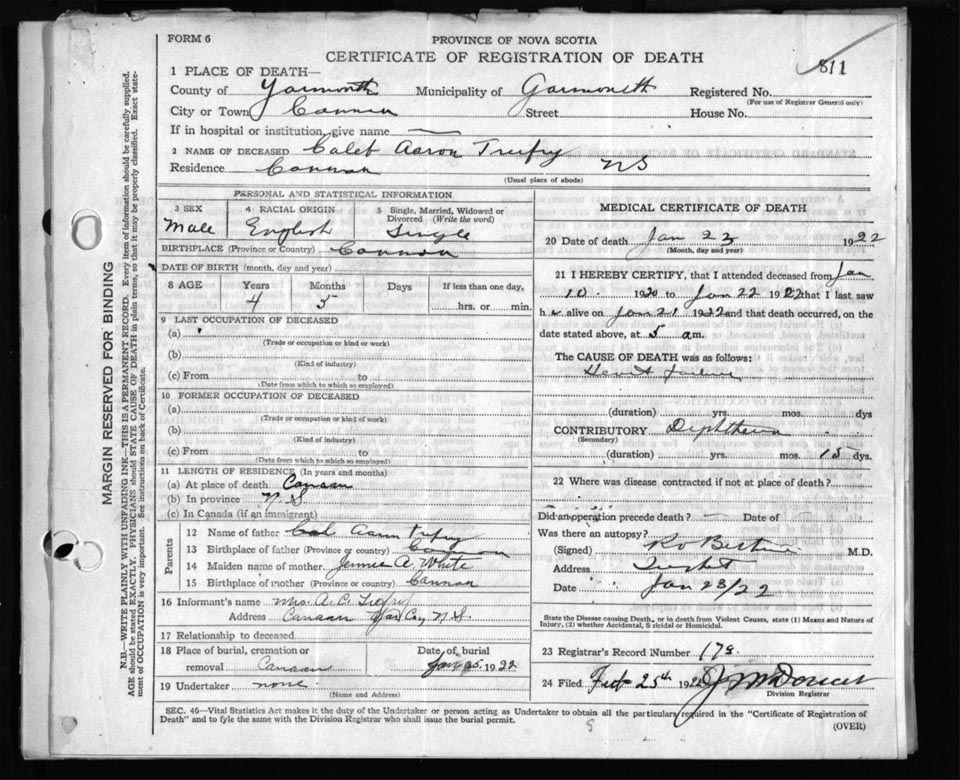 FORM 6
PROVINCE OF NOVA SCOTIA
CERTIFICATE OF REGISTRATION OF DEATH
811
1 PLACE OF DEATH—
County of Yarmouth Municipality of Yarmouth Registered No.
(For use of Registrar General only)
City or Town Cannan Street House No.
If in hospital or institution, give name —
2 NAME OF DECEASED Calet Aaron Trefry
Residence Cannan NS
(Usual place of abode)
PERSONAL AND STATISTICAL INFORMATION
3 SEX Male
4 RACIAL ORIGIN English
5 Single, Married, Widowed or Divorced (Write the word) Single
BIRTHPLACE (Province or Country) Cannan
DATE OF BIRTH (month, day and year)
8 AGE Years Months Days If less than one day,
4 5 hrs. or min.
9 LAST OCCUPATION OF DECEASED
(a)
(Trade or occupation or kind or work)
(b)
(Kind of industry)
(c) From to
(Date from which to which so employed)
10 FORMER OCCUPATION OF DECEASED
(a)
(Trade or occupation or kind of work)
(b)
(Kind of industry)
(c) From to
(Date from which to which so employed)
11 LENGTH OF RESIDENCE (In years and months)
(a) At place of death Canaan
(b) In province N.S
(c) In Canada (if an immigrant)
Parents
12 Name of father Cal Aaron Trefry
13 Birthplace of father (Province or country) Cannan
14 Maiden name of mother Jennie A. White
15 Birthplace of mother (Province or country) Cannan
16 Informant's name Mrs. A. C. Trefry
Address Canaan Yar Co, N.S.
17 Relationship to deceased
18 Place of burial, cremation or removal Canaan
Date of burial Jan 25, 1922
19 Undertaker none
(Name and Address)
MEDICAL CERTIFICATE OF DEATH
20 Date of death Jan 23 1922
(Month, day and year)
21 I HEREBY CERTIFY, that I attended deceased from Jan
10 1920 to Jan 22 1922 that I last saw
h alive on Jan 21 1922 and that death occurred, on the
date stated above, at 5 am.
The CAUSE OF DEATH was as follows:
Heart failure
(duration) yrs. mos. dys
CONTRIBUTORY Diphtheria
(Secondary)
(duration) yrs. mos. 15 dys.
22 Where was disease contracted if not at place of death?
Did an operation precede death? — Date of —
Was there an autopsy?
(Signed) M.D.
Address Tusket
Date Jan 23/22
State the Disease causing Death, or in death from Violent Causes, state (1) Means and Nature of
Injury, (2) whether Accidental, Suicidal or Homicidal.
23 Registrar's Record Number 178
24 Filed Feb 25th 192
Division Registrar
SEC. 46—Vital Statistics Act makes it the duty of the Undertaker or person acting as Undertaker to obtain all the particulars required in the "Certificate of Registration of
Death" and to fyle the same with the Division Registrar who shall issue the burial permit.
(OVER)
MARGIN RESERVED FOR BINDING
N.B.—WRITE PLAINLY WITH UNFADING INK—THIS IS A PERMANENT RECORD. Every item of information should be carefully supplied.
AGE should be stated EXACTLY. PHYSICIANS should STATE CAUSE OF DEATH in plain terms, so that it may be properly classified. Exact statement of OCCUPATION is very important. See instructions on back of Certificate.